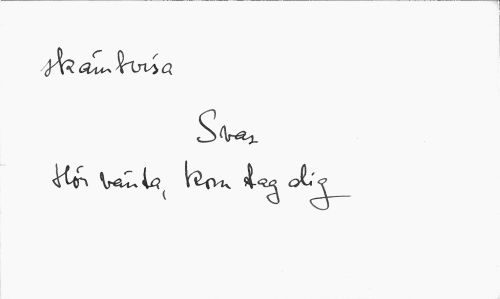 skämtvisa
Svar
Hör vänta, kom tag dig